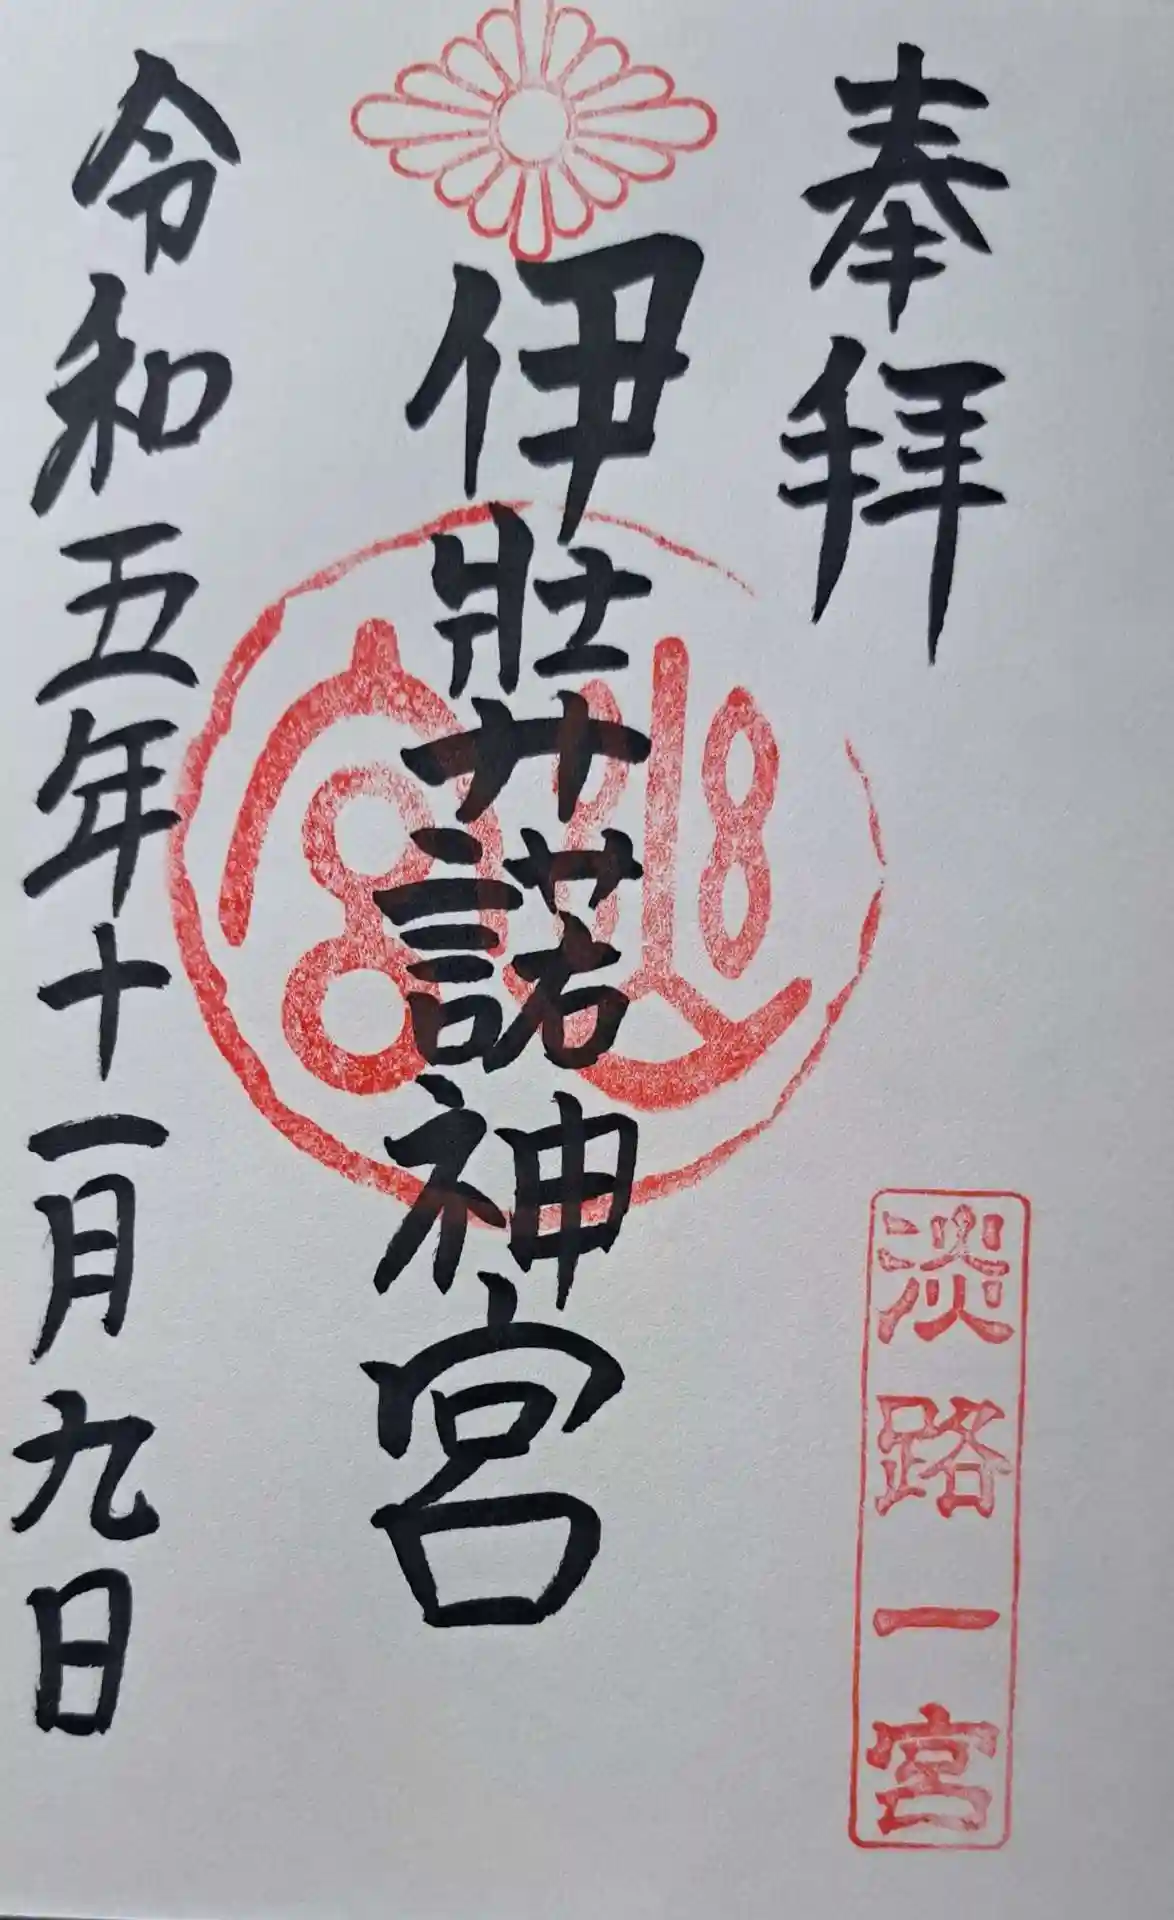 奉拝
淡路一宮
伊弉諾神宮
幽宮
令和五年十一月九日